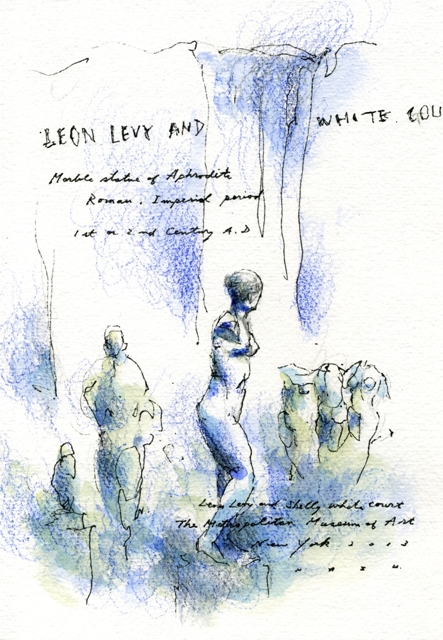 LEON LEVY AND WHITE COU
Marble statue of Aphrodite
Roman. Imperial period
1st or 2nd Century A.D
Leon Levy and Shelly white court
The Metropolitan Museum of Art
New York 2013